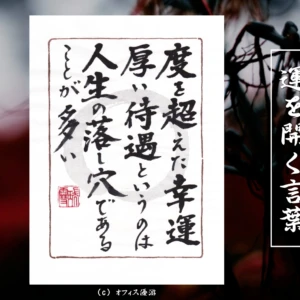 運を開く言葉
度を超えた幸運
厚い待遇というのは
人生の落し穴である
ことが多い
(c) オフィス優游